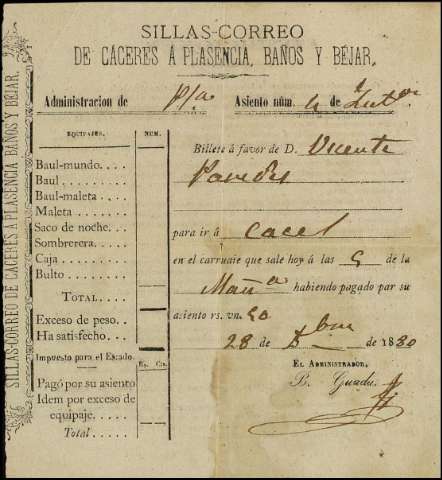 SILLAS-CORREO
DE CÁCERES Á PLASENCIA, BAÑOS Y BÉJAR.
SILLAS-CORREO DE CÁCERES Á PLASENCIA, BAÑOS Y BÉJAR.
Administracion de Pla Asiento núm. 4
EQUIPAJES. NUM.
Baul-mundo. . . .
Baul. . . . . . . .
Baul-maleta. . . .
Maleta. . . . . . .
Saco de noche. . .
Sombrerera. . . . .
Caja . . . . . . .
Bulto . . . . . . .
TOTAL. . . . .
Exceso de peso. .
Ha satisfecho. . .
Impuesto para el Estado. Rs. Cts.
Pagó por su asiento
Idem por exceso de
equipaje. . . . .
Total. . . . .
Billete á favor de D. Vicente
Paredes
para ir á Cacel
en el carruaje que sale hoy á las 5 de la
Mañª habiendo pagado par su
asiento rs. vn. 50
28 de Xbre de 1880
EL ADMINISTRADOR,
P. Guadu